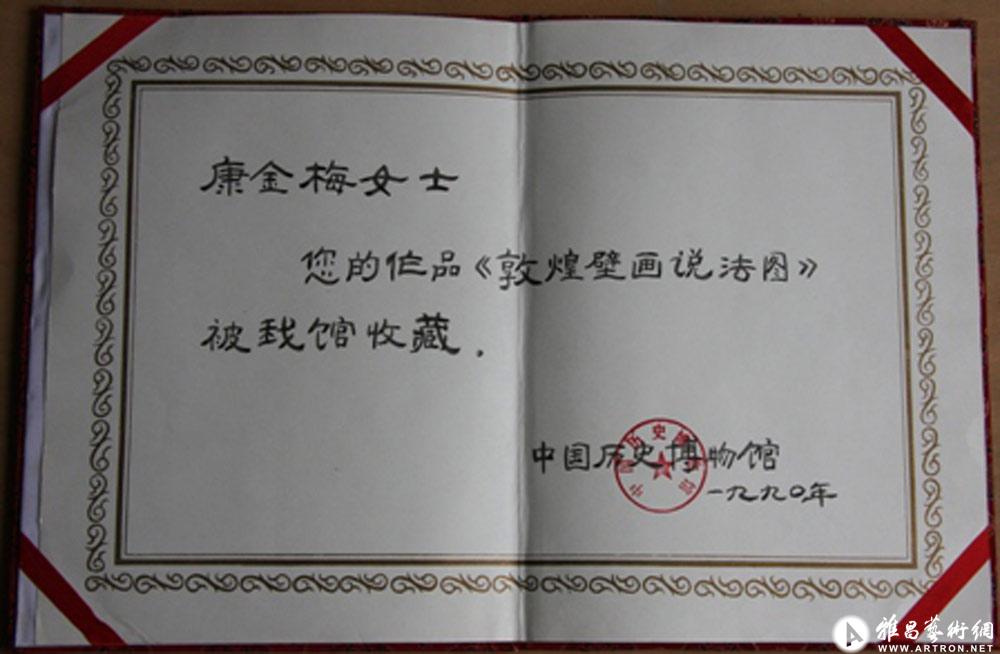 康金梅女士
您的作品《敦煌壁画说法图》
被我馆收藏.
中国历史博物馆
一九九〇年
中国历史博物馆
雅昌藝術網
WWW.ARTRON.NET